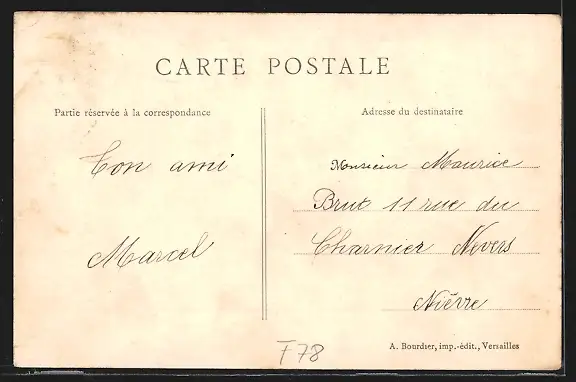 CARTE POSTALE
Partie réservée à la correspondance
Adresse du destinataire
Ton ami
Marcel
Monsieur Maurice
Brut 11 rue du
Charnier Nevers
Nièvre
F78
A. Bourdier, imp.-édit., Versailles